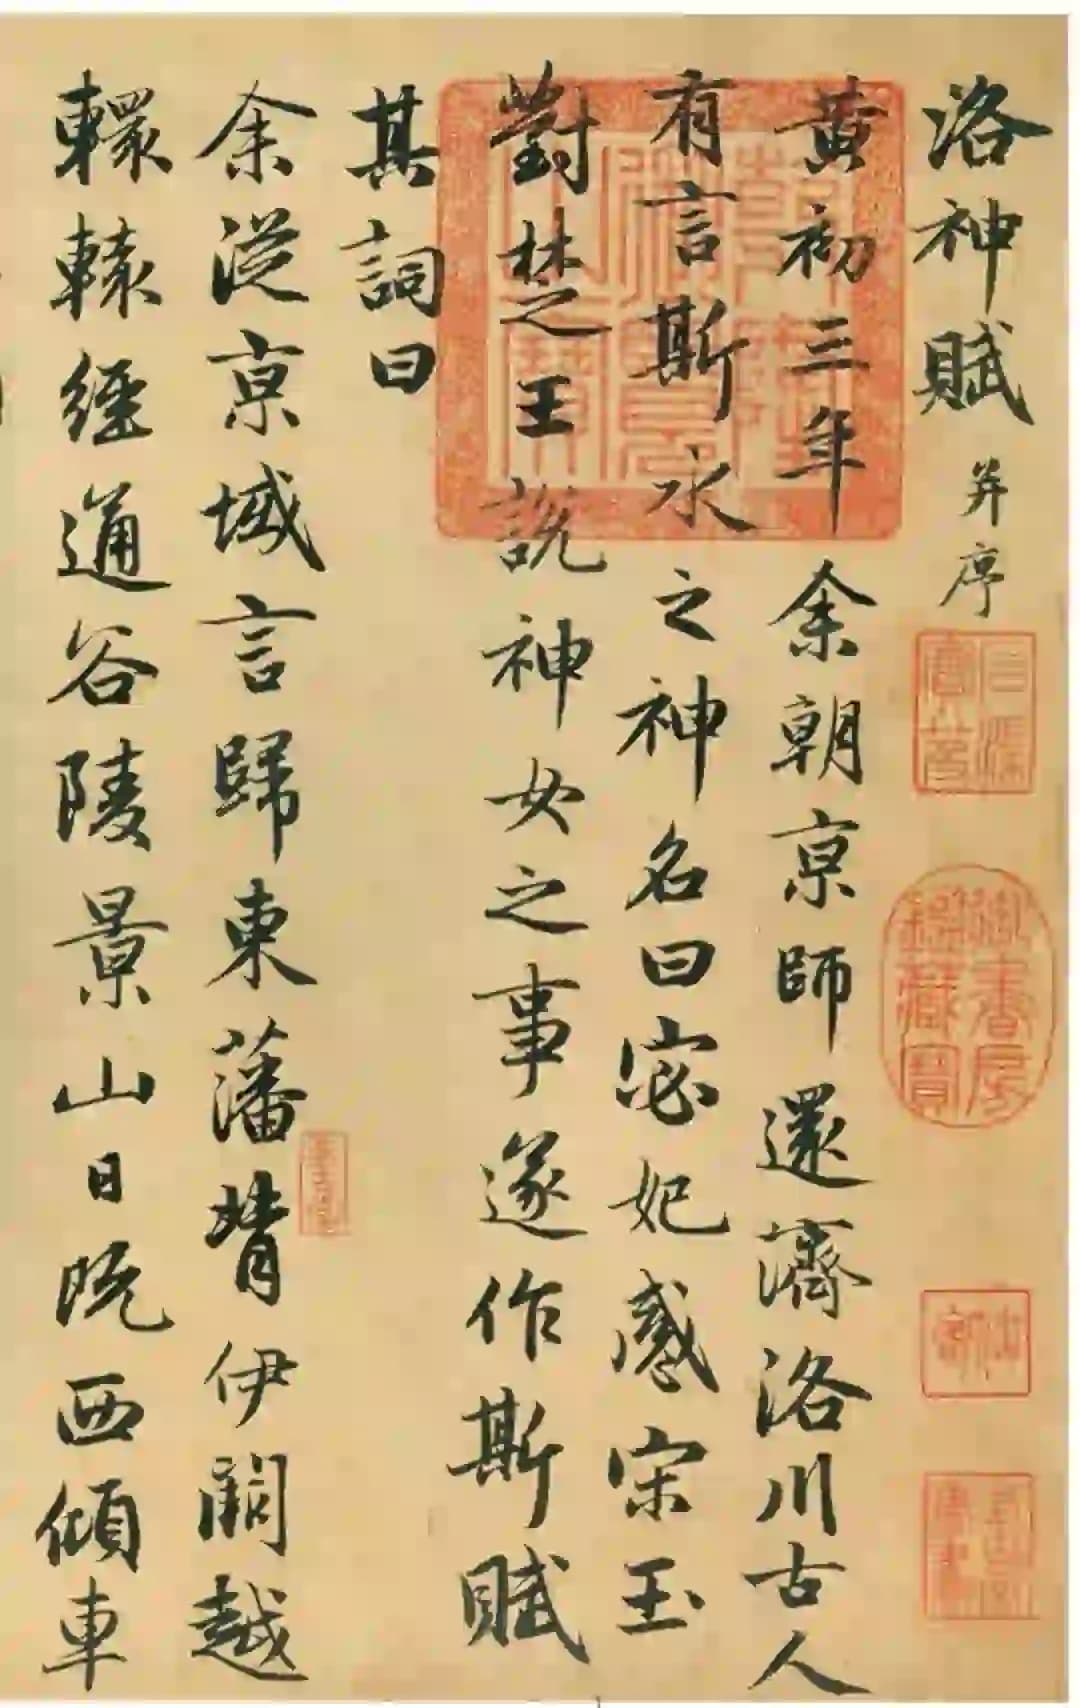 洛神賦 并序
黃初三年余朝京師還濟洛川古人
有言斯水之神名曰宓妃感宋玉
對楚王說神女之事遂作斯賦
其詞曰
余從京域言歸東藩背伊闕越
轘轅經通谷陵景山日既西傾車
御書房鑑藏寶